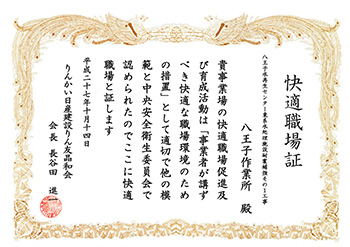 快適職場証
八王子水再生センター東系水処理施設耐震補強その2工事
八王子作業所 殿
貴事業場の快適職場促進及
び育成活動は「事業者が講ず
べき快適な職場環境のため
の措置」として適切で他の模
範と中央安全衛生委員会で
認められたのでここに快適
職場と証します
平成二十七年十月十四日
りんかい日産建設りん友品和会
会長 長谷田 進